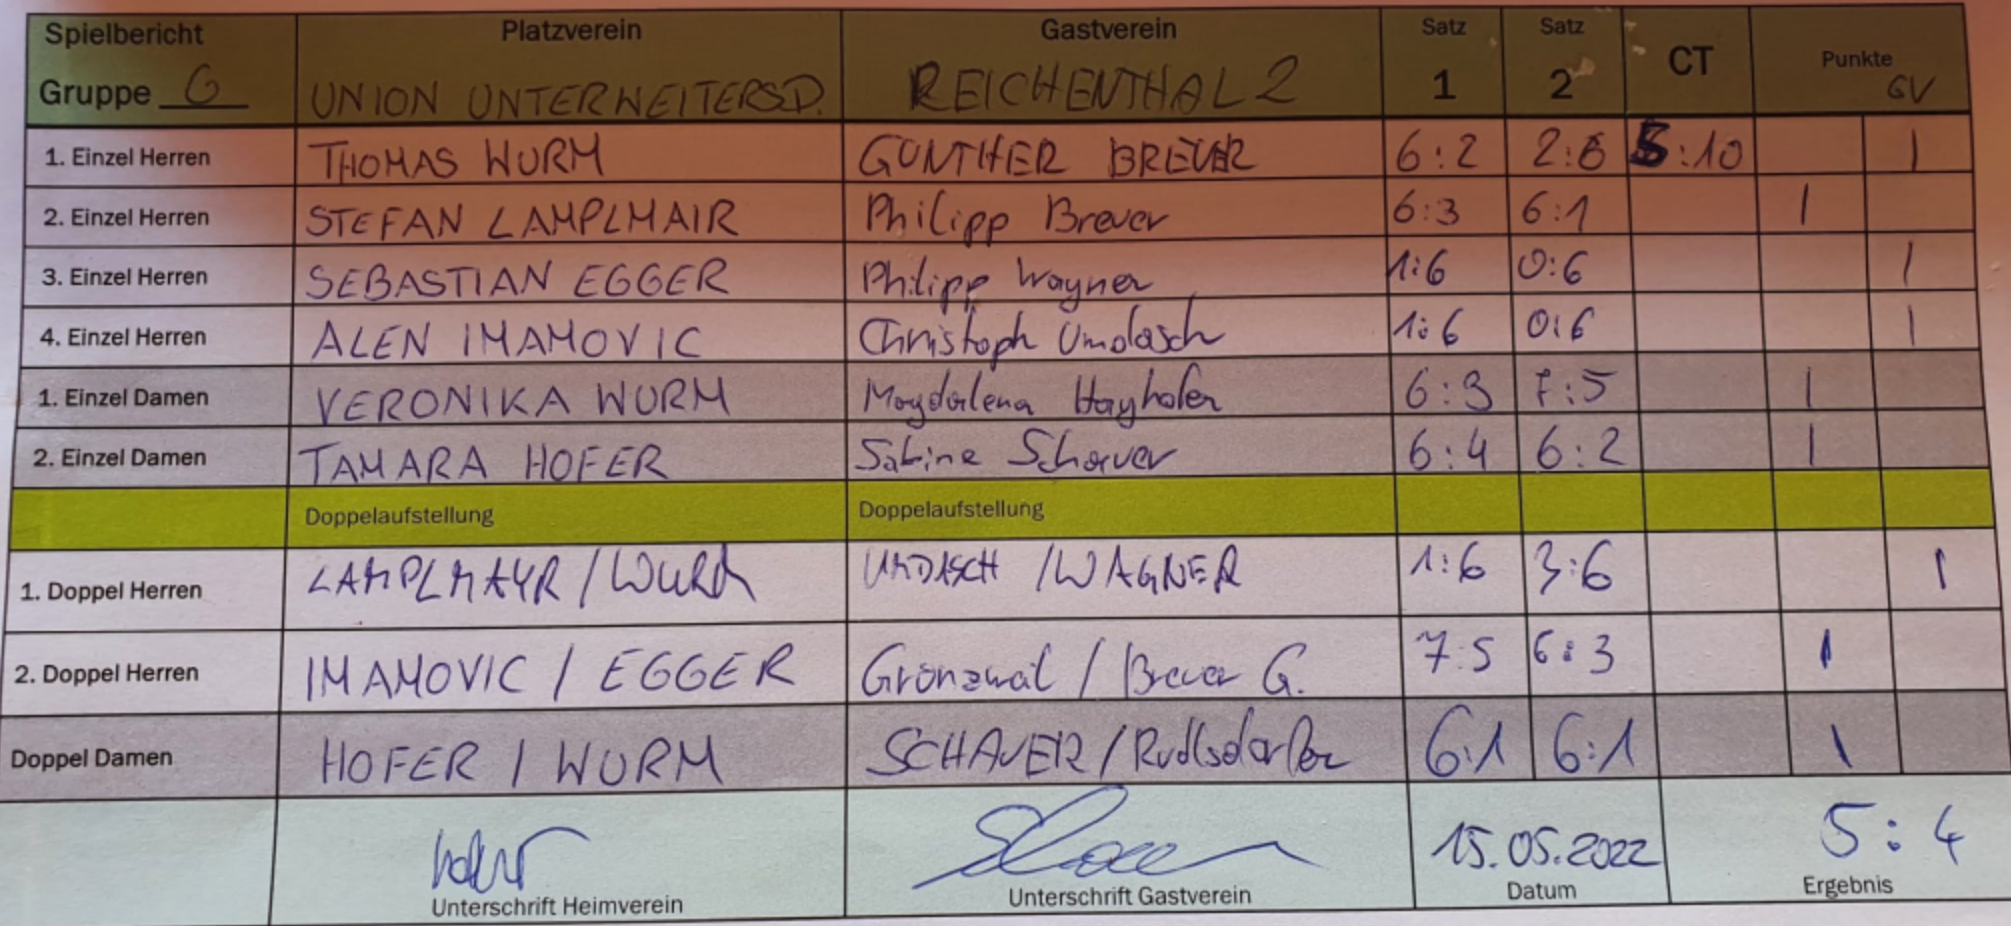 Spielbericht Platzverein Gastverein Satz Satz CT Punkte
Gruppe G UNION UNTERWEITERSD. REICHENTHAL 2 1 2 GV
1. Einzel Herren THOMAS WURM GÜNTHER BREUER 6:2 2:6 5:10 1
2. Einzel Herren STEFAN LAMPLMAIR Philipp Breuer 6:3 6:1 1
3. Einzel Herren SEBASTIAN EGGER Philipp Wagner 1:6 0:6 1
4. Einzel Herren ALEN IMAMOVIC Christoph Umdasch 1:6 0:6 1
1. Einzel Damen VERONIKA WURM Magdalena Hayhofer 6:3 7:5 1
2. Einzel Damen TAMARA HOFER Sabine Schauer 6:4 6:2 1
Doppelaufstellung Doppelaufstellung
1. Doppel Herren LAMPLMAYR / WURM UMDASCH / WAGNER 1:6 3:6 1
2. Doppel Herren IMAMOVIC / EGGER / Breuer G. 7:5 6:3 1
Doppel Damen HOFER / WURM SCHAUER / Rudlsdorfer 6:1 6:1 1
15.05.2022 5:4
Unterschrift Heimverein Unterschrift Gastverein Datum Ergebnis